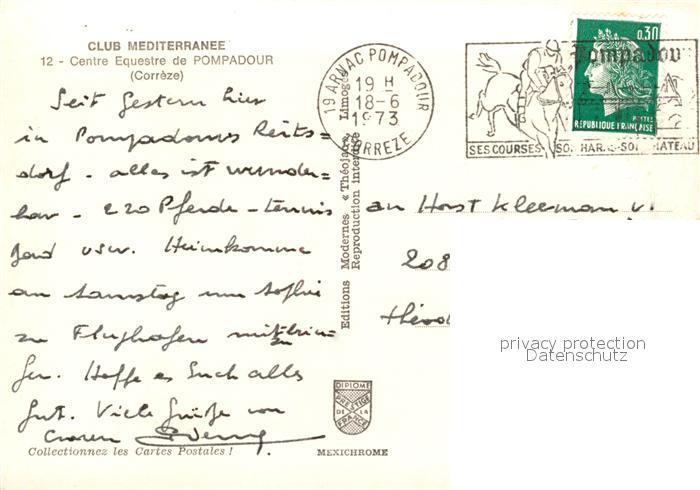 CLUB MEDITERRANEE
12 - Centre Equestre de POMPADOUR
(Corrèze)
Seit gestern hier
in Pompadours Reits=
dorf - alles ist wunder=
bar - 220 Pferde - Tennis
usw. Heimkomme
am Samstag um
zu Flughafen
gen. Hoffe es Euch alles
gut. Viele Grüße von
Collectionnez les Cartes Postales !
19 ARNAC POMPADOUR
19 H
18-6
1973
CORREZE
Editions Modernes « Théojac », Limoges
Reproduction interdite
DIPLOME
PRESTIGE
DE LA
FRANCE
MEXICHROME
0,30
Pompadour
POSTES
REPUBLIQUE FRANÇAISE
SES COURSES-SON HARAS-SON CHATEAU
an Horst Kleeman
208
privacy protection
Datenschutz